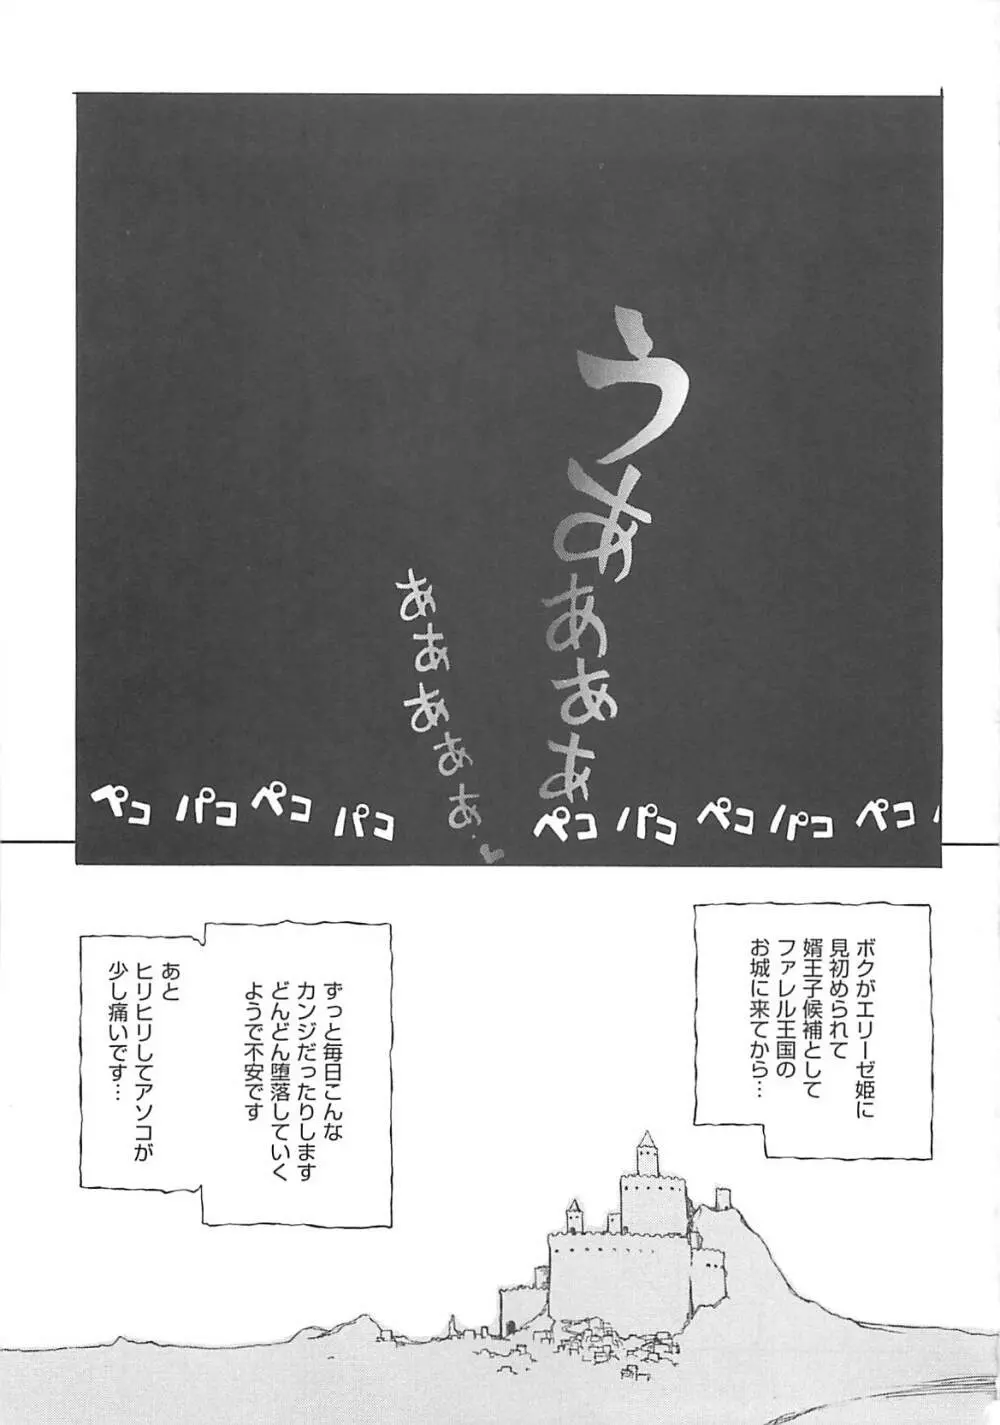 うあぁぁぁ
ああああぁ…
ペコ パコ ペコ パコ ペコ パコ ペコ パコ ペコ
ボクがエリーゼ姫に
見初められて
婿王子候補として
ファレル王国の
お城に来てから…
ずっと毎日こんな
カンジだったりします
どんどん堕落していく
ようで不安です
あと
ヒリヒリしてアソコが
少し痛いです…